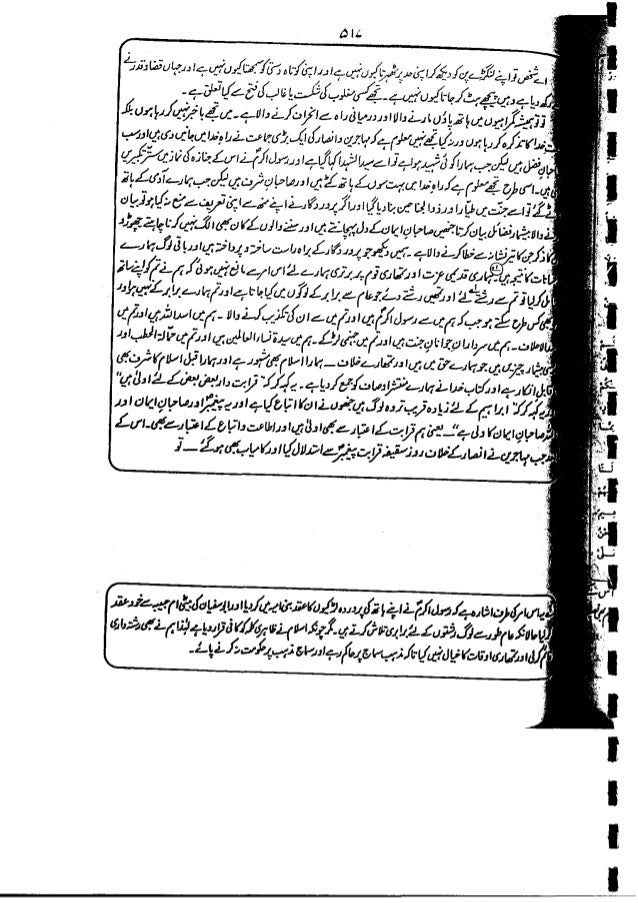 ۵۱۷
اے شخص تو اپنے لنگڑے پن کو دیکھ کر اپنی حد پر ٹھہرتا کیوں نہیں ہے اور اپنی کوتاہ دستی کو سمجھتا کیوں نہیں ہے اور جہاں قضا و قدر نے
رکھ دیا ہے وہیں پیچھے ہٹ کر جاتا کیوں نہیں ہے۔ تجھے کسی مغلوب کی شکست یا غالب کی فتح سے کیا تعلق ہے۔
تو تو ہمیشہ گمراہیوں میں ہاتھ پاؤں مارنے والا اور درمیانی راہ سے انحراف کرنے والا ہے۔ میں تجھے باخبر نہیں کر رہا ہوں بلکہ
خدا کا تذکرہ کر رہا ہوں ورنہ کیا تجھے نہیں معلوم ہے کہ مہاجرین و انصار کی ایک بڑی جماعت نے راہ خدا میں جانیں دی ہیں اور سب
صاحبان فضل ہیں لیکن جب ہمارا کوئی شہید ہوا ہے تو اسے سید الشہدا کہا گیا ہے اور رسول اکرمؐ نے اس کے جنازہ کی نماز میں ستر تکبیریں
ہیں۔ اسی طرح تجھے معلوم ہے کہ راہ خدا میں بہت سوں کے ہاتھ کٹے ہیں اور صاحبان شرف ہیں لیکن جب ہمارے آدمی کے ہاتھ
گئے تو اسے جنت میں طیار اور ذوالجناحین بنا دیا گیا اور اگر پروردگار نے اپنے منھ سے اپنی تعریف سے منع نہ کیا ہوتا تو بیان
والا بیشمار فضائل بیان کرتا جنھیں صاحبان ایمان کے دل پہچانتے ہیں اور سننے والوں کے کان بھی الگ نہیں کرنا چاہتے چھوڑو
ذکر جن کا تیر نشانہ سے خطا کرنے والا ہے۔ ہمیں دیکھو جو پروردگار کے براہ راست ساختہ و پرداختہ ہیں اور باقی لوگ ہمارے
کا نتیجہ ہیں۔ ہماری قدیمی عزت اور تمھاری قوم پر برتری ہمارے لئے اس امر سے مانع نہیں ہوئی کہ ہم نے تم کو اپنے ساتھ
کر لیا تو تم سے رشتے لئے اور تمھیں رشتے دئے جو عام سے برابر کے لوگوں میں کیا جاتا ہے اور تم ہمارے برابر کے نہیں ہو اور
بھی کس طرح سکتے ہو جب کہ ہم میں سے رسول اکرمؐ ہیں اور تم میں سے ان کی تکذیب کرنے والا۔ ہم میں اسد اللہ ہیں اور تم میں
اسد الاحلاف۔ ہم میں سرداران جوانان جنت ہیں اور تم میں جہنمی لڑکے۔ ہم میں سیدۃ نساء العالمین ہیں اور تم میں حمالۃ الحطب اور
بیشمار چیزیں ہیں جو ہمارے حق میں ہیں اور تمھارے خلاف — ہمارا اسلام بھی مشہور ہے اور ہمارا قبل اسلام کا شرف بھی
قابل انکار ہے اور کتاب خدا نے ہمارے منتشر اوصاف کو جمع کر دیا ہے۔ یہ کہہ کر کہ "قرابتدار بعض بعض کے لئے اولیٰ ہیں"
یہ کہہ کر کہ "ابراہیم کے لئے زیادہ قریب تر وہ لوگ ہیں جنھوں نے ان کا اتباع کیا ہے اور یہ پیغمبرؐ اور صاحبان ایمان اور
اللہ صاحبان ایمان کا ولی ہے" — یعنی ہم قرابت کے اعتبار سے بھی اولیٰ ہیں اور اطاعت و اتباع کے اعتبار سے بھی۔ اس کے
جب مہاجرین نے انصار کے خلاف روز سقیفہ قرابت پیغمبرؐ سے استدلال کیا اور کامیاب بھی ہو گئے — تو
اس امر کی طرف اشارہ ہے کہ رسول اکرمؐ نے اپنے ہاتھ کی پروردہ لڑکیوں کا عقد بنی امیہ میں کر دیا اور ابوسفیان کی بیٹی ام حبیبہ سے خود عقد
کر لیا حالانکہ عام طور سے لوگ رشتوں کے لئے برابری تلاش کرتے ہیں۔ مگر چونکہ اسلام نے ظاہری کلمہ کو کافی قرار دیا ہے لہٰذا ہم نے بھی رشتہ داری
قائم کر لی اور تمھاری اوقات کا خیال نہیں کیا تاکہ مذہب سماج پر حاکم رہے اور سماج مذہب پر حکومت نہ کرنے پائے۔